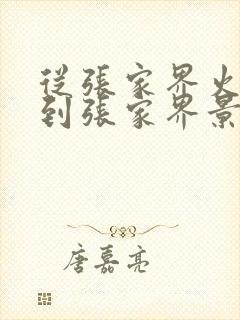 從張家界火
到張家界景
唐嘉亮